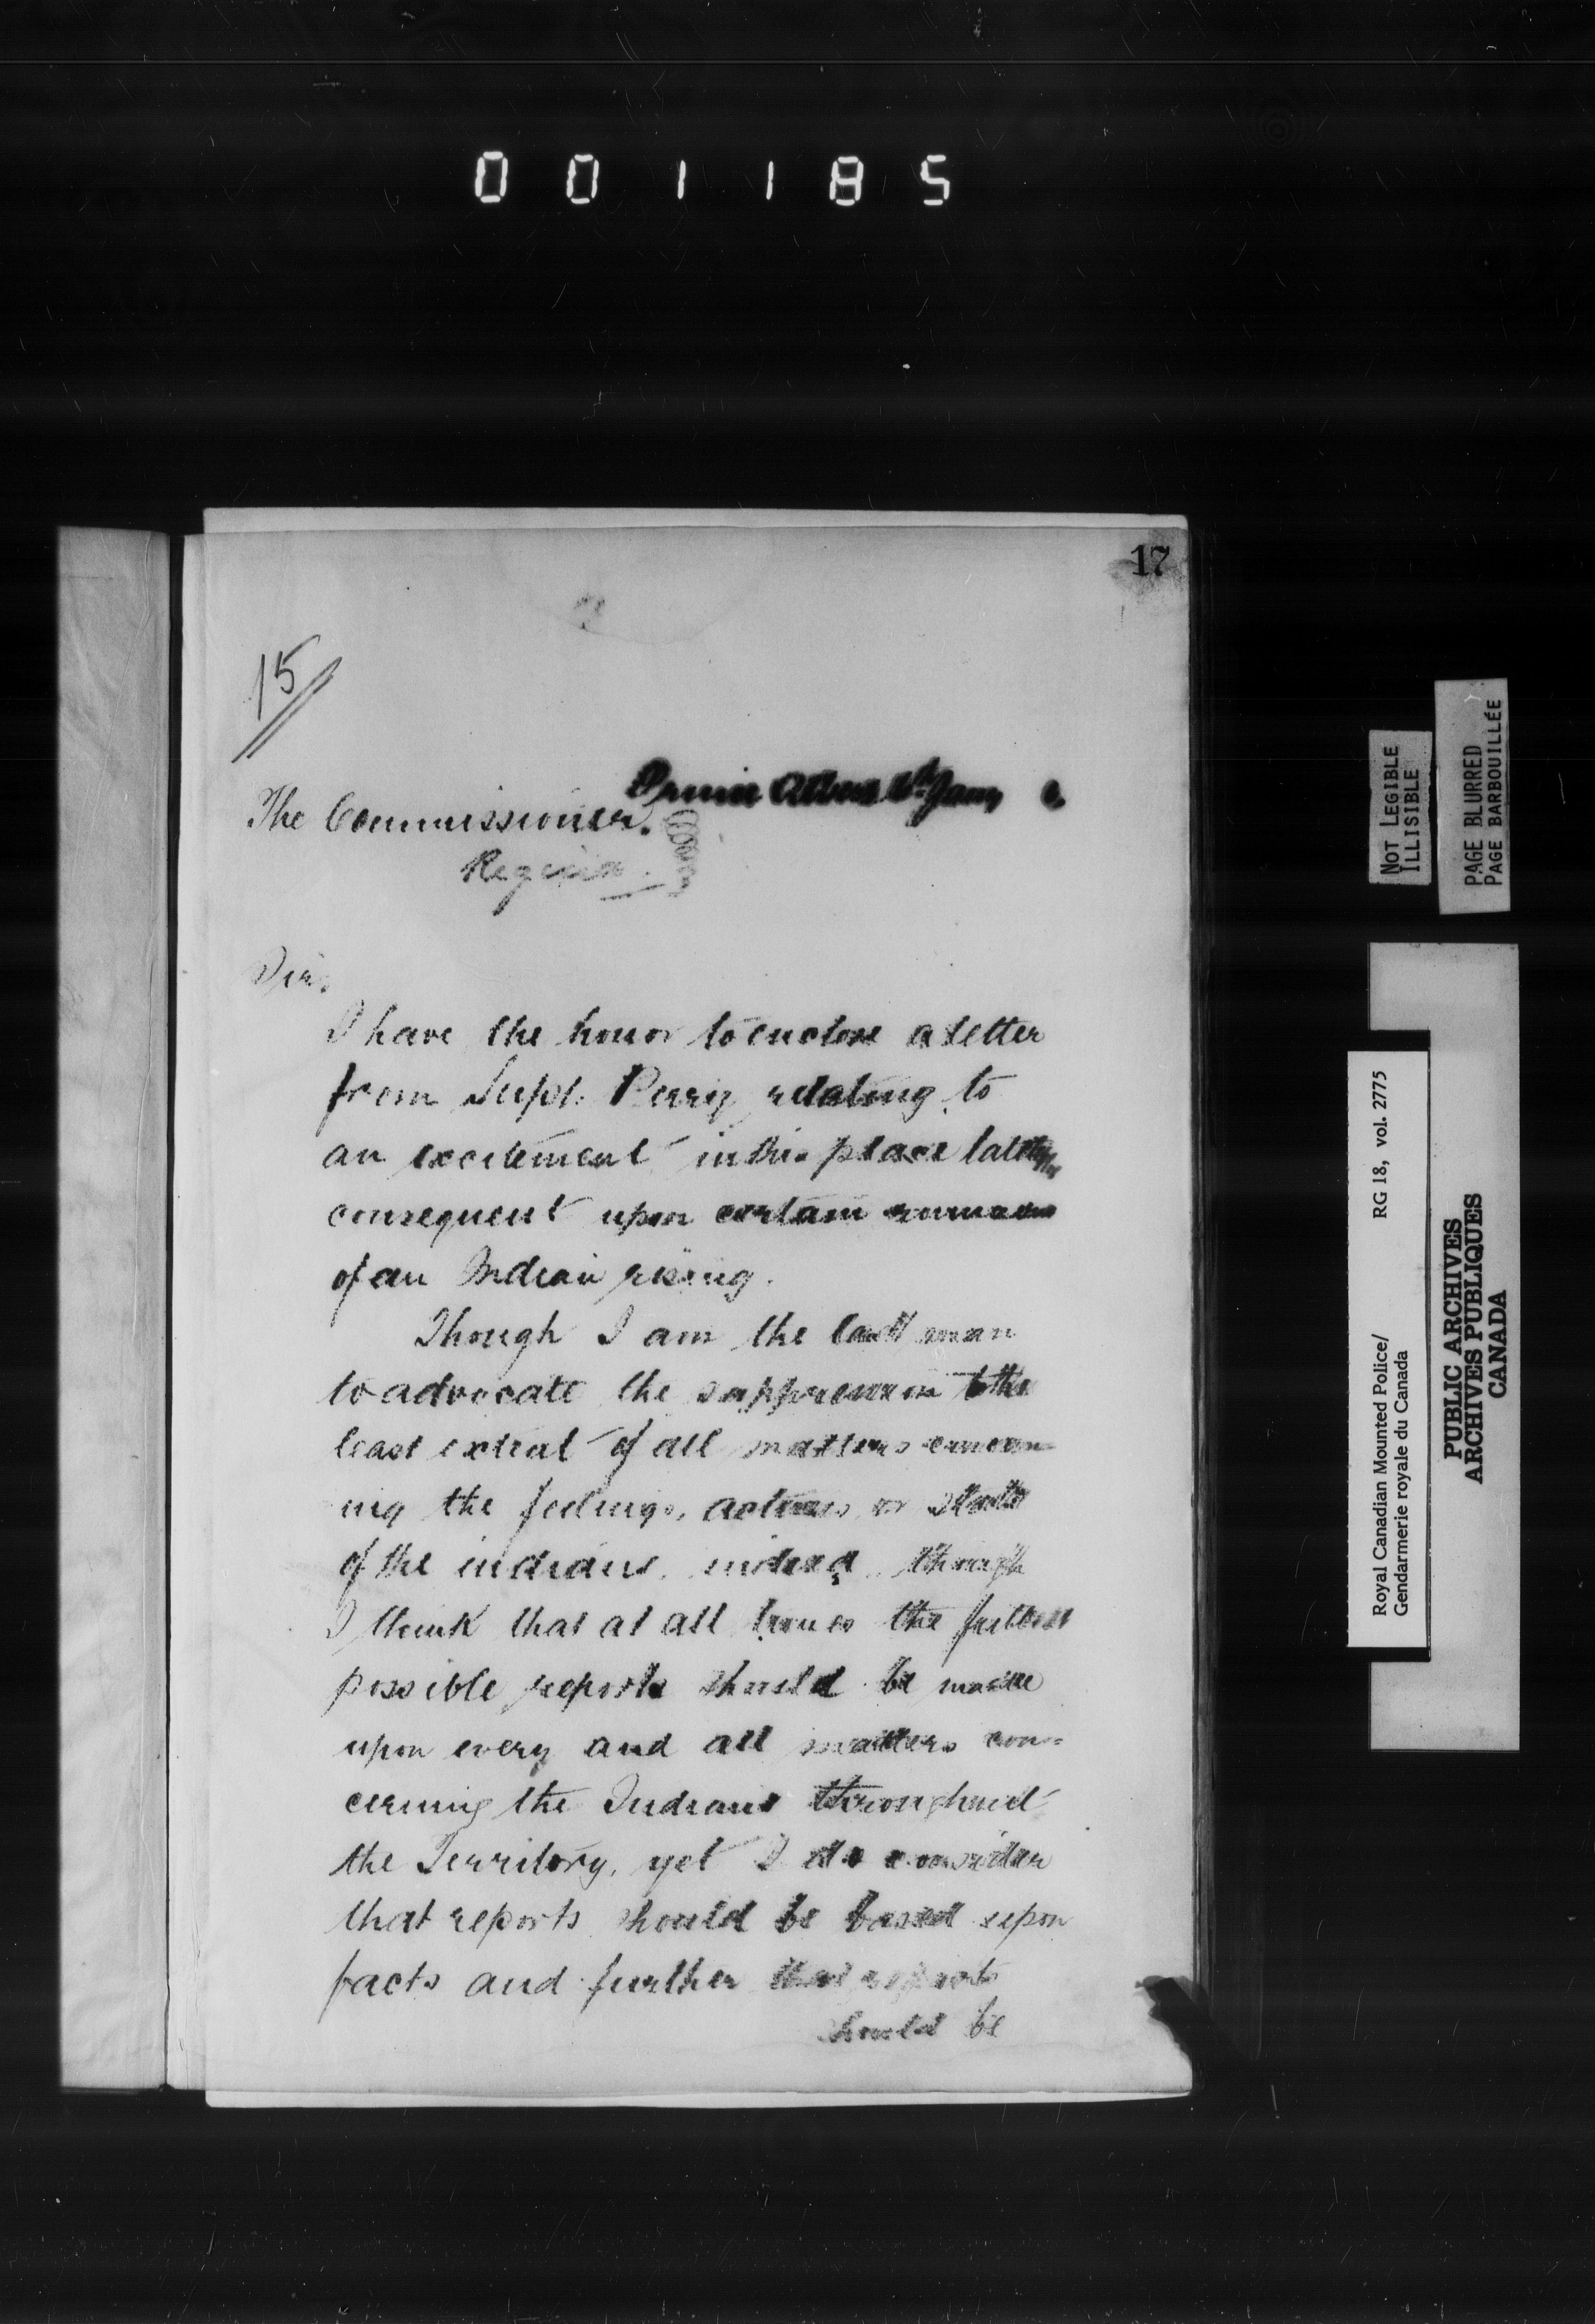 001185
17
15
Prince Albert Jany
The Commissioner.
Regina.
Sir,
I have the honor to enclose a letter
from Supt. Perry relating to
an excitement in this place lately
consequent upon certain rumours
of an Indian rising.
Though I am the last man
to advocate the suppression to the
least extent of all matters concern-
ing the feelings, actions, or state
of the indians. indeed though
I think that at all times the fullest
possible reports should be made
upon every and all matters con-
cerning the Indians throughout
the Territory, yet I do consider
that reports should be based upon
facts and further that reports
should be
NOT LEGIBLE
ILLISIBLE
PAGE BLURRED
PAGE BARBOUILLÉE
Royal Canadian Mounted Police/ RG 18, vol. 2775
Gendarmerie royale du Canada
PUBLIC ARCHIVES
ARCHIVES PUBLIQUES
CANADA